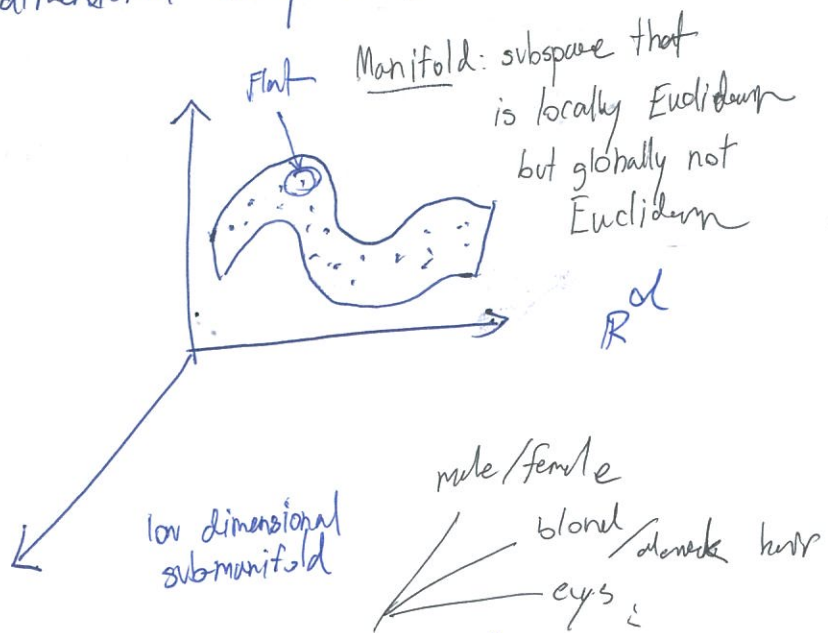 Flat
Manifold: subspace that
is locally Euclidean
but globally not
Euclidean
R^d
male/female
low dimensional
submanifold
blond / hair
eyes